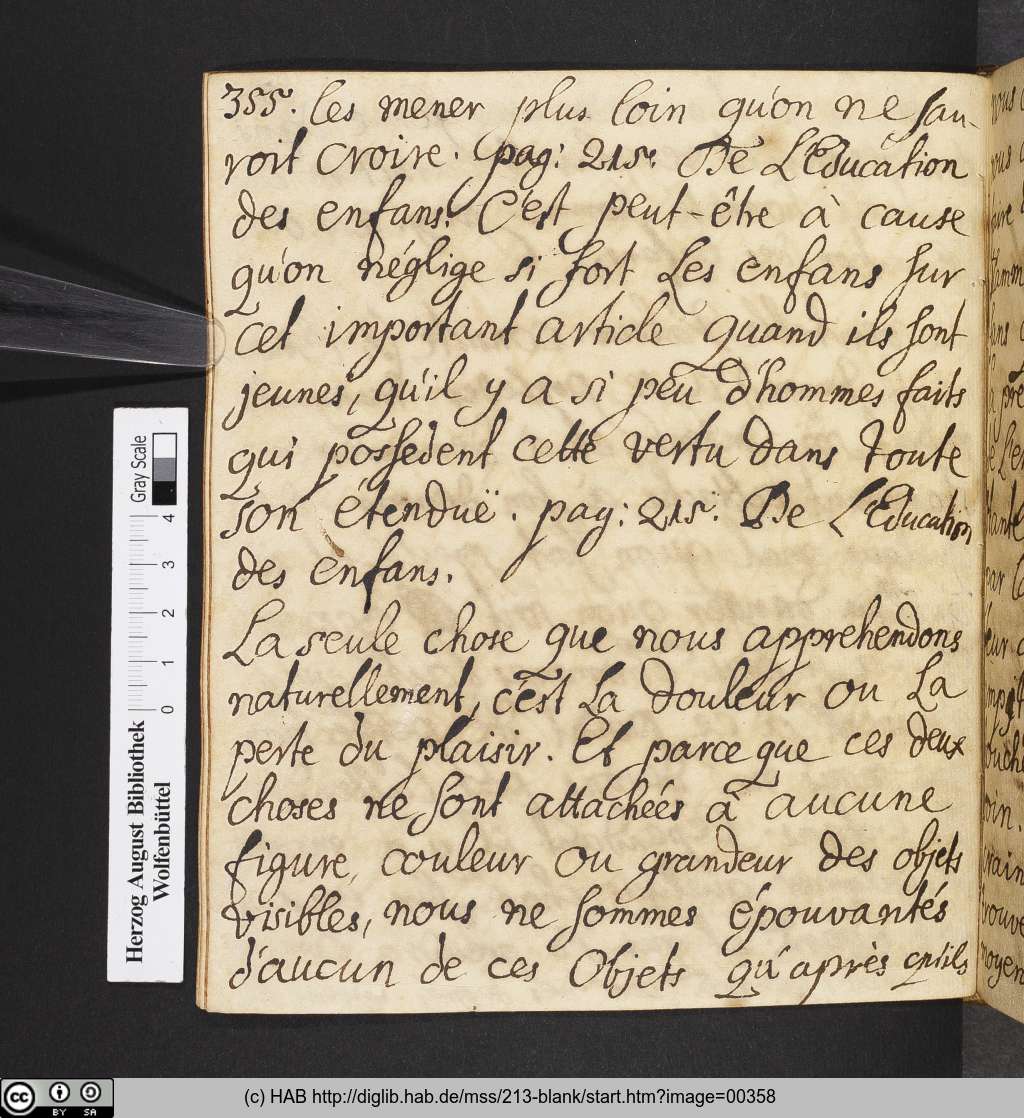 355. les mener plus loin qu'on ne sau-
roit croire. pag: 215. De L'Education
des enfans. C'est peut-être à cause
qu'on néglige si fort Les enfans sur
cet important article quand ils sont
jeunes, qu'il y a si peu d'hommes faits
qui possèdent cette vertu dans toute
son étenduë. pag: 215. De L'Education
des enfans.
La seule chose que nous apprehendons
naturellement, c'est La douleur ou La
perte du plaisir. Et parce que ces deux
choses ne sont attachées à aucune
figure, couleur ou grandeur des objets
visibles, nous ne sommes épouvantés
d'aucun de ces Objets qu'après qu'ils
Herzog August Bibliothek
Wolfenbüttel
Gray Scale
0 1 2 3 4
cc BY SA
(c) HAB http://diglib.hab.de/mss/213-blank/start.htm?image=00358